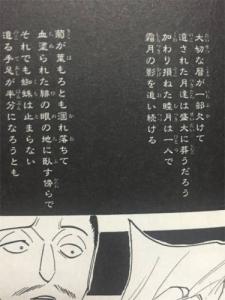 大切な暦が一部欠けて
遺された月達は盛大に葬うだろう
加わり損ねた睦月は一人で
霜月の影を追い続ける
菊が葉もろとも涸れ落ちて
血塗られた緋の眼の地に臥す傍らで
それでも蜘蛛は止まらない
遺る手足が半分になろうとも